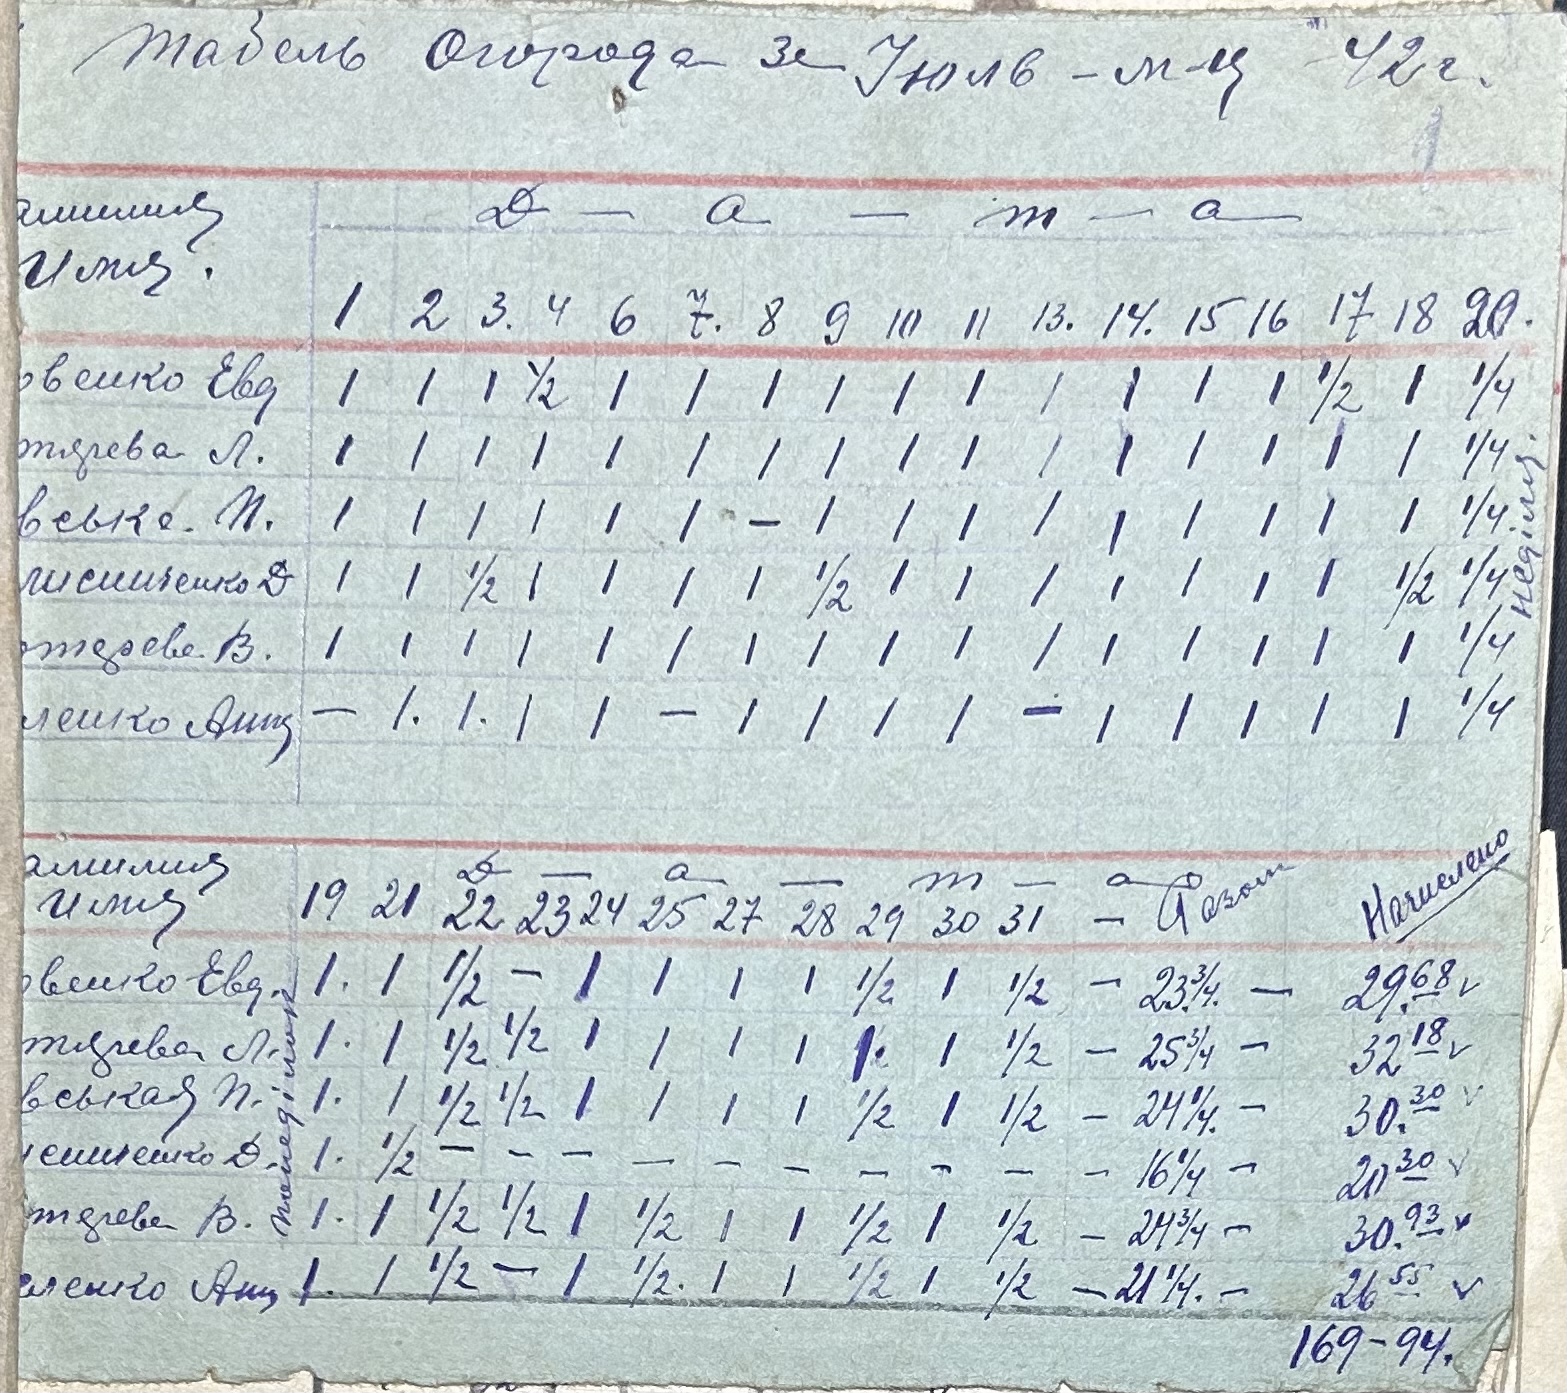 Табель Огорода за Июль - м-ц 42 г.
амилия Д — а — т — а
Имя.
1 2 3. 4 6 7. 8 9 10 11 13. 14. 15 16 17 18 20.
овенко Евд 1 1 1 1/2 1 1 1 1 1 1 1 1 1 1 1/2 1 1/4
тярева Л. 1 1 1 1 1 1 1 1 1 1 1 1 1 1 1 1 1/4
вська. П. 1 1 1 1 1 1 — 1 1 1 1 1 1 1 1 1 1/4
Д 1 1 1/2 1 1 1 1 1/2 1 1 1 1 1 1 1 1/2 1/4
отярева В. 1 1 1 1 1 1 1 1 1 1 1 1 1 1 1 1 1/4
ленко Анн — 1. 1. 1 1 — 1 1 1 1 — 1 1 1 1 1 1/4
неділя.
амилия Д — а — т — а Разом Начислено
Имя 19 21 22 23 24 25 27 28 29 30 31 —
понеділок
овенко Евд. 1. 1 1/2 — 1 1 1 1 1/2 1 1/2 — 23 3/4. — 29.68
тярева Л. 1. 1 1/2 1/2 1 1 1 1 1 1/2 — 25 3/4 — 32 18
вськая П. 1. 1 1/2 1/2 1 1 1 1 1/2 1 1/2 — 24 1/4. — 30.30
Д. 1. 1/2 — — — — — — — — — — 16 1/4 — 20 30
тярева В. 1. 1 1/2 1/2 1 1/2 1 1 1/2 1 1/2 — 24 3/4 — 30.93
ленко Анн 1. 1 1/2 — 1 1/2. 1 1 1/2 1 1/2 — 21 1/4. — 26 55
169-94.